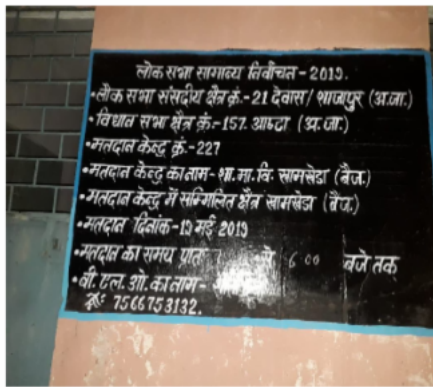 लोक सभा सामान्य निर्वाचन-2019.
•लोक सभा संसदीय क्षेत्र क्रं.-21 देवास/शाजापुर (अ.जा.)
•विधान सभा क्षेत्र क्रं.-157. आष्टा (अ.जा.)
•मतदान केन्द्र क्रं.-227
•मतदान केन्द्र का नाम-शा.मा.वि. सामरखेडा (बैज.)
•मतदान केन्द्र में सम्मिलित क्षेत्र सामरखेडा (बैज.)
•मतदान दिनांक-19 मई 2019
•मतदान का समय प्रातः 7 से 6:00 बजे तक
•बी.एल.ओ. का नाम-
7566753132.